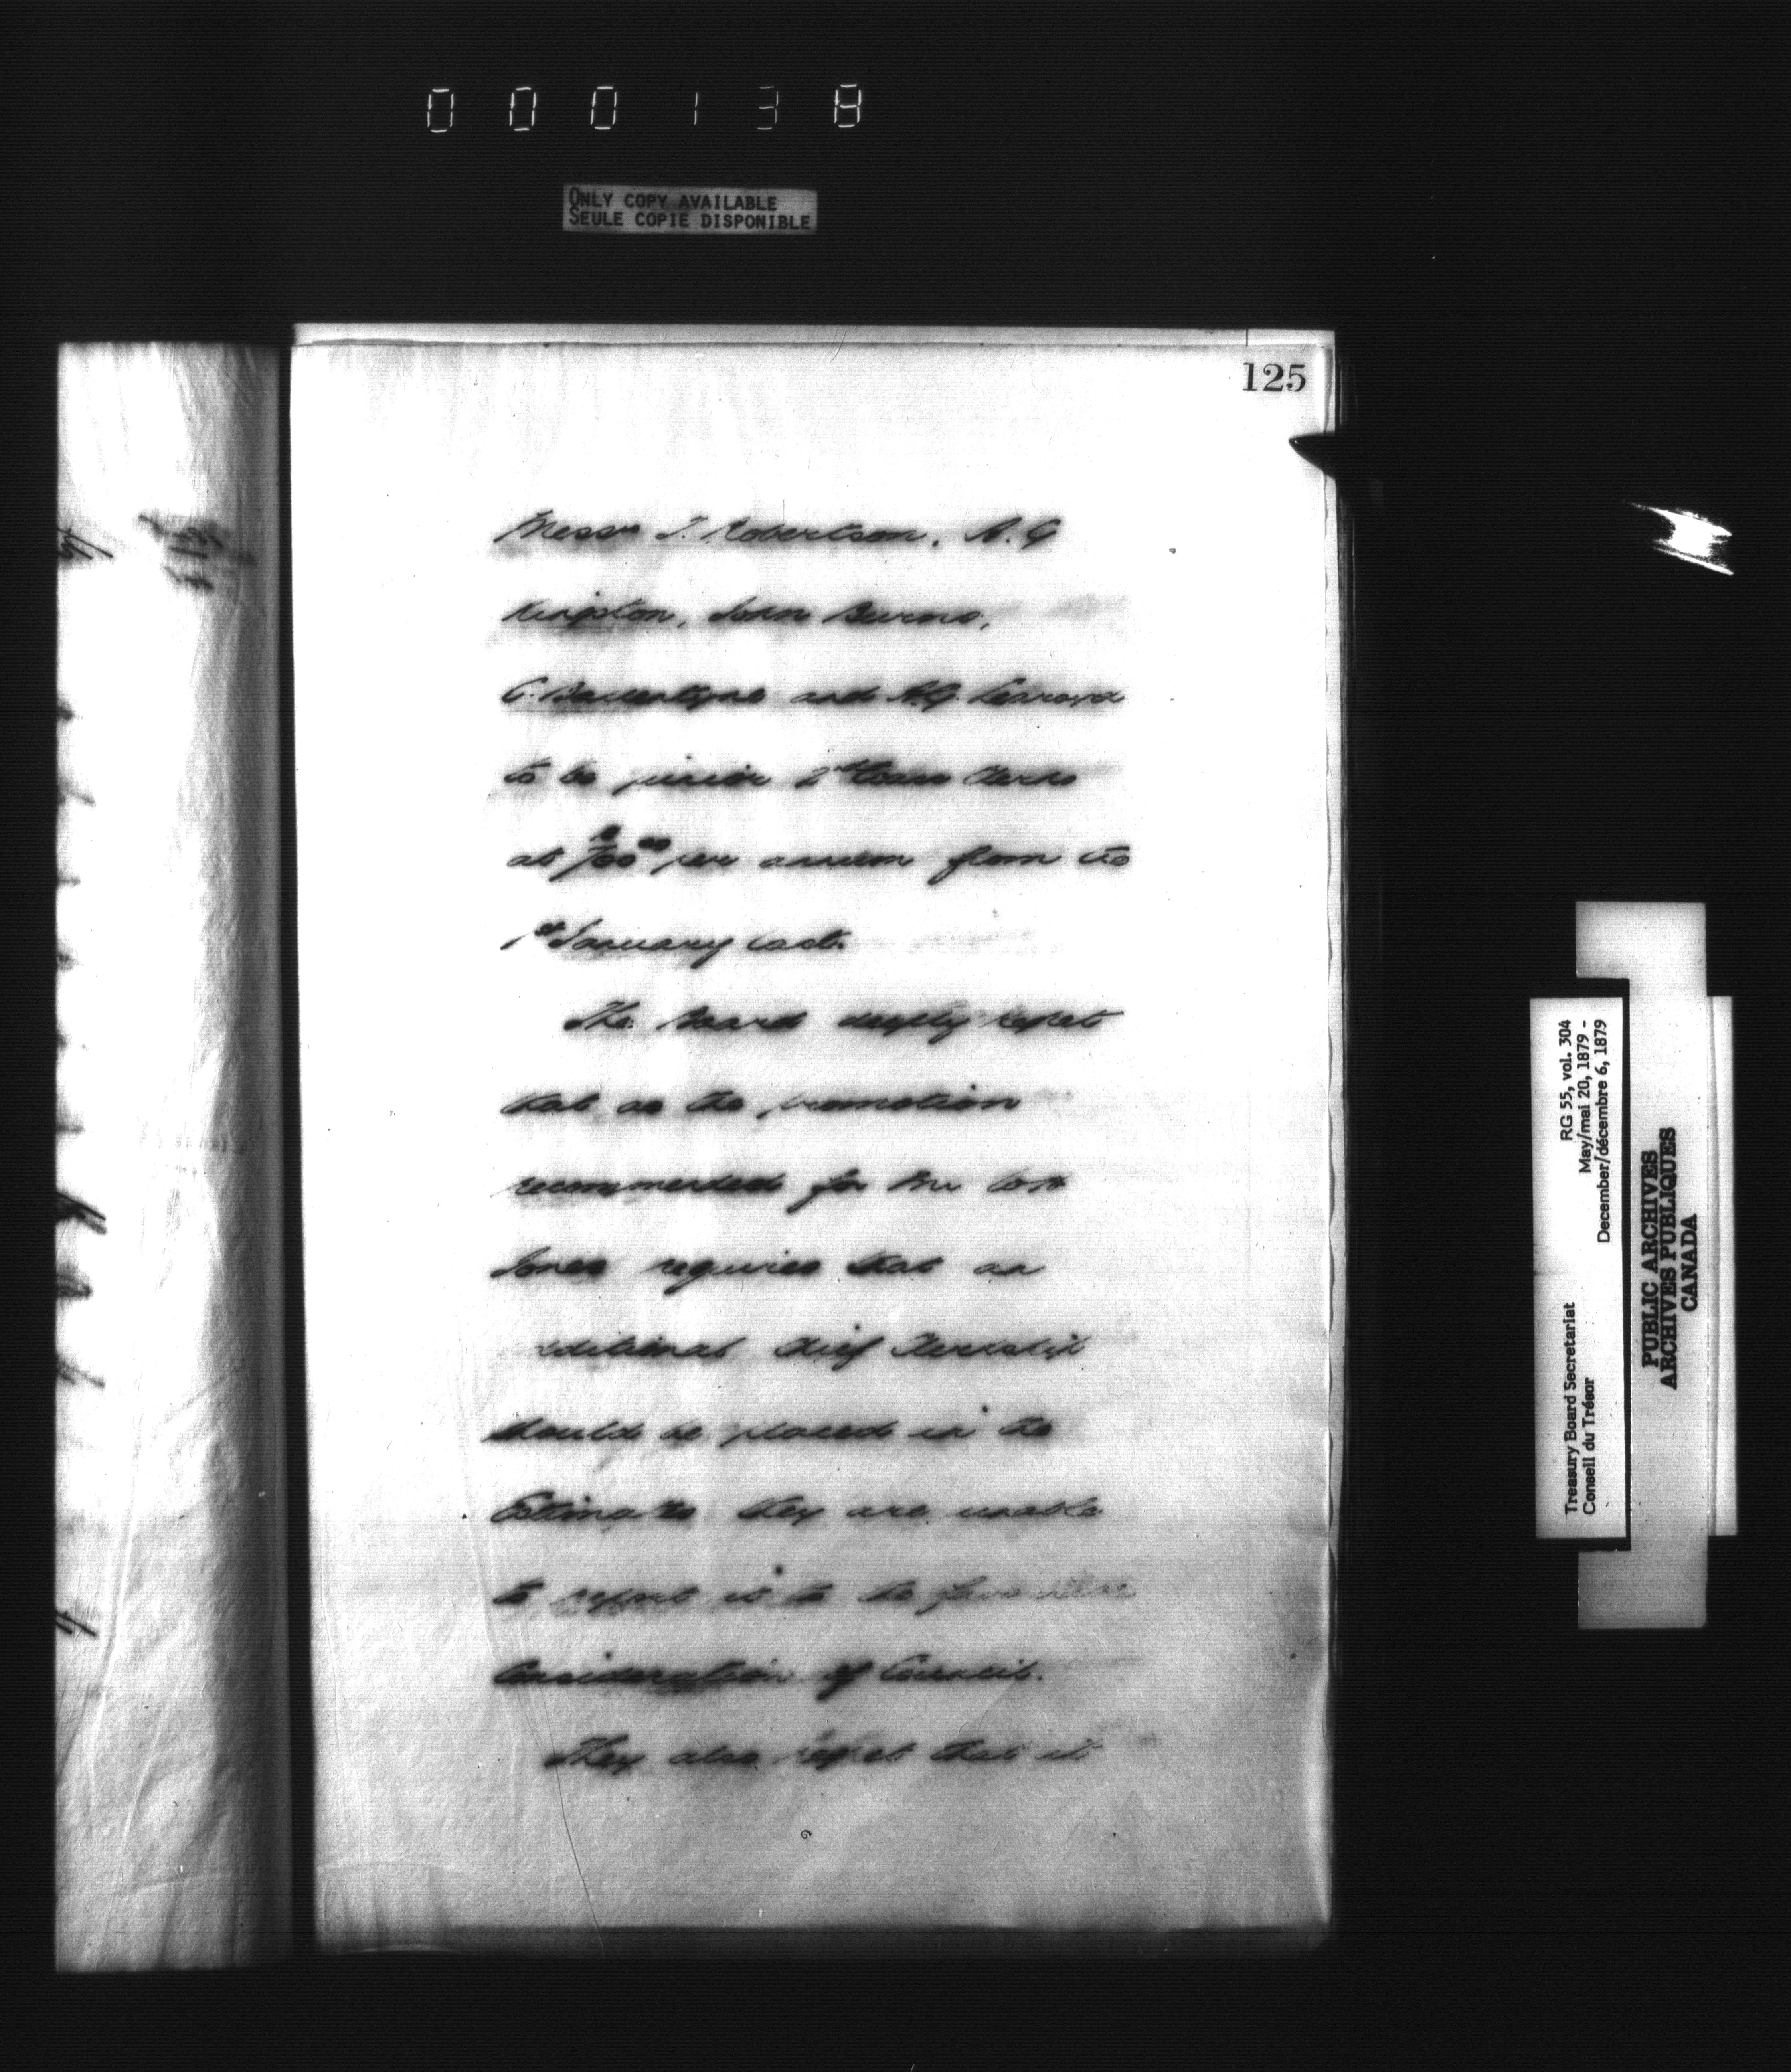 000138
ONLY COPY AVAILABLE
SEULE COPIE DISPONIBLE
125
Messrs T. Robertson, A. G
Kingston, John Burns,
C. Ballantyne and A.G.
to be junior 2nd Class Clerks
at $700.00 per annum from the
1st January last.
The Board deeply regret
that as the promotion
recommended for Mr
Jones requires that an
additional Chief Clerkship
should be placed in the
Estimates they are unable
to report it to the favourable
Consideration of Council.
They also regret that it
Treasury Board Secretariat RG 55, vol. 304
Conseil du Trésor May/mai 20, 1879 -
December/décembre 6, 1879
PUBLIC ARCHIVES
ARCHIVES PUBLIQUES
CANADA